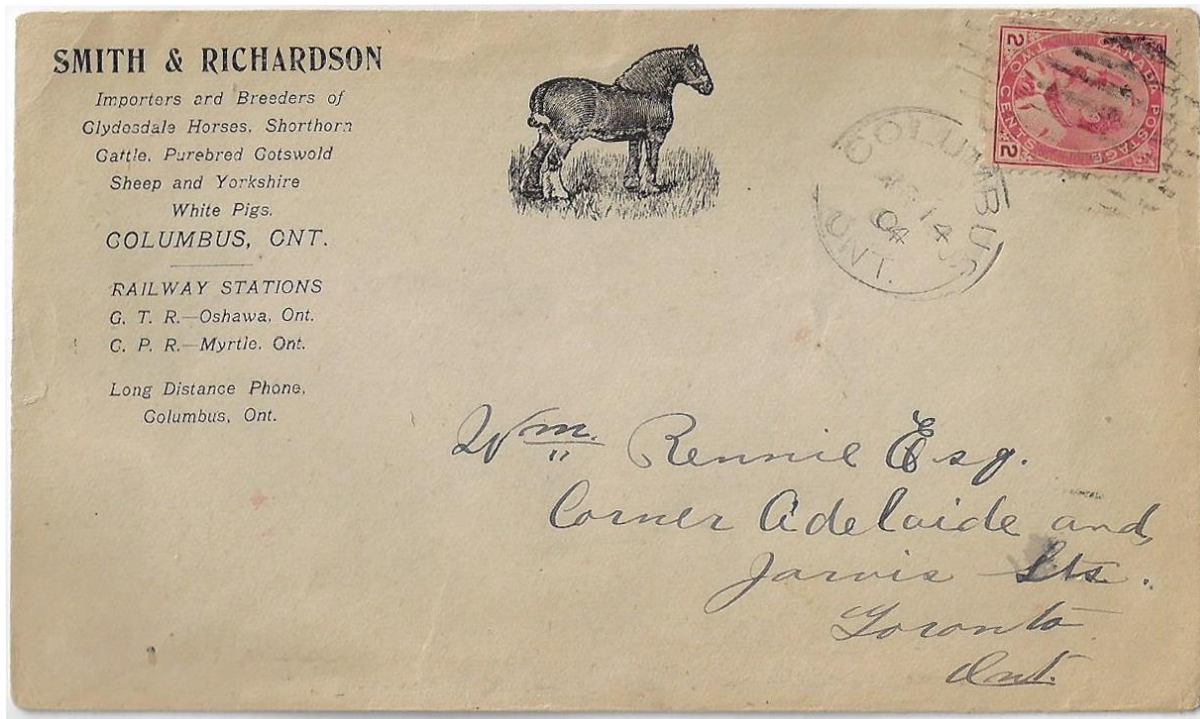 SMITH & RICHARDSON
Importers and Breeders of
Clydesdale Horses, Shorthorn
Cattle, Purebred Cotswold
Sheep and Yorkshire
White Pigs.
COLUMBUS, ONT.
RAILWAY STATIONS
G. T. R.—Oshawa, Ont.
C. P. R.—Myrtle, Ont.
Long Distance Phone,
Columbus, Ont.
CANADA POSTAGE
TWO CENTS
2
2
COLUMBUS
14
04
ONT.
Wm. Rennie Esq.
Corner Adelaide and
Jarvis Sts.
Toronto
Ont.